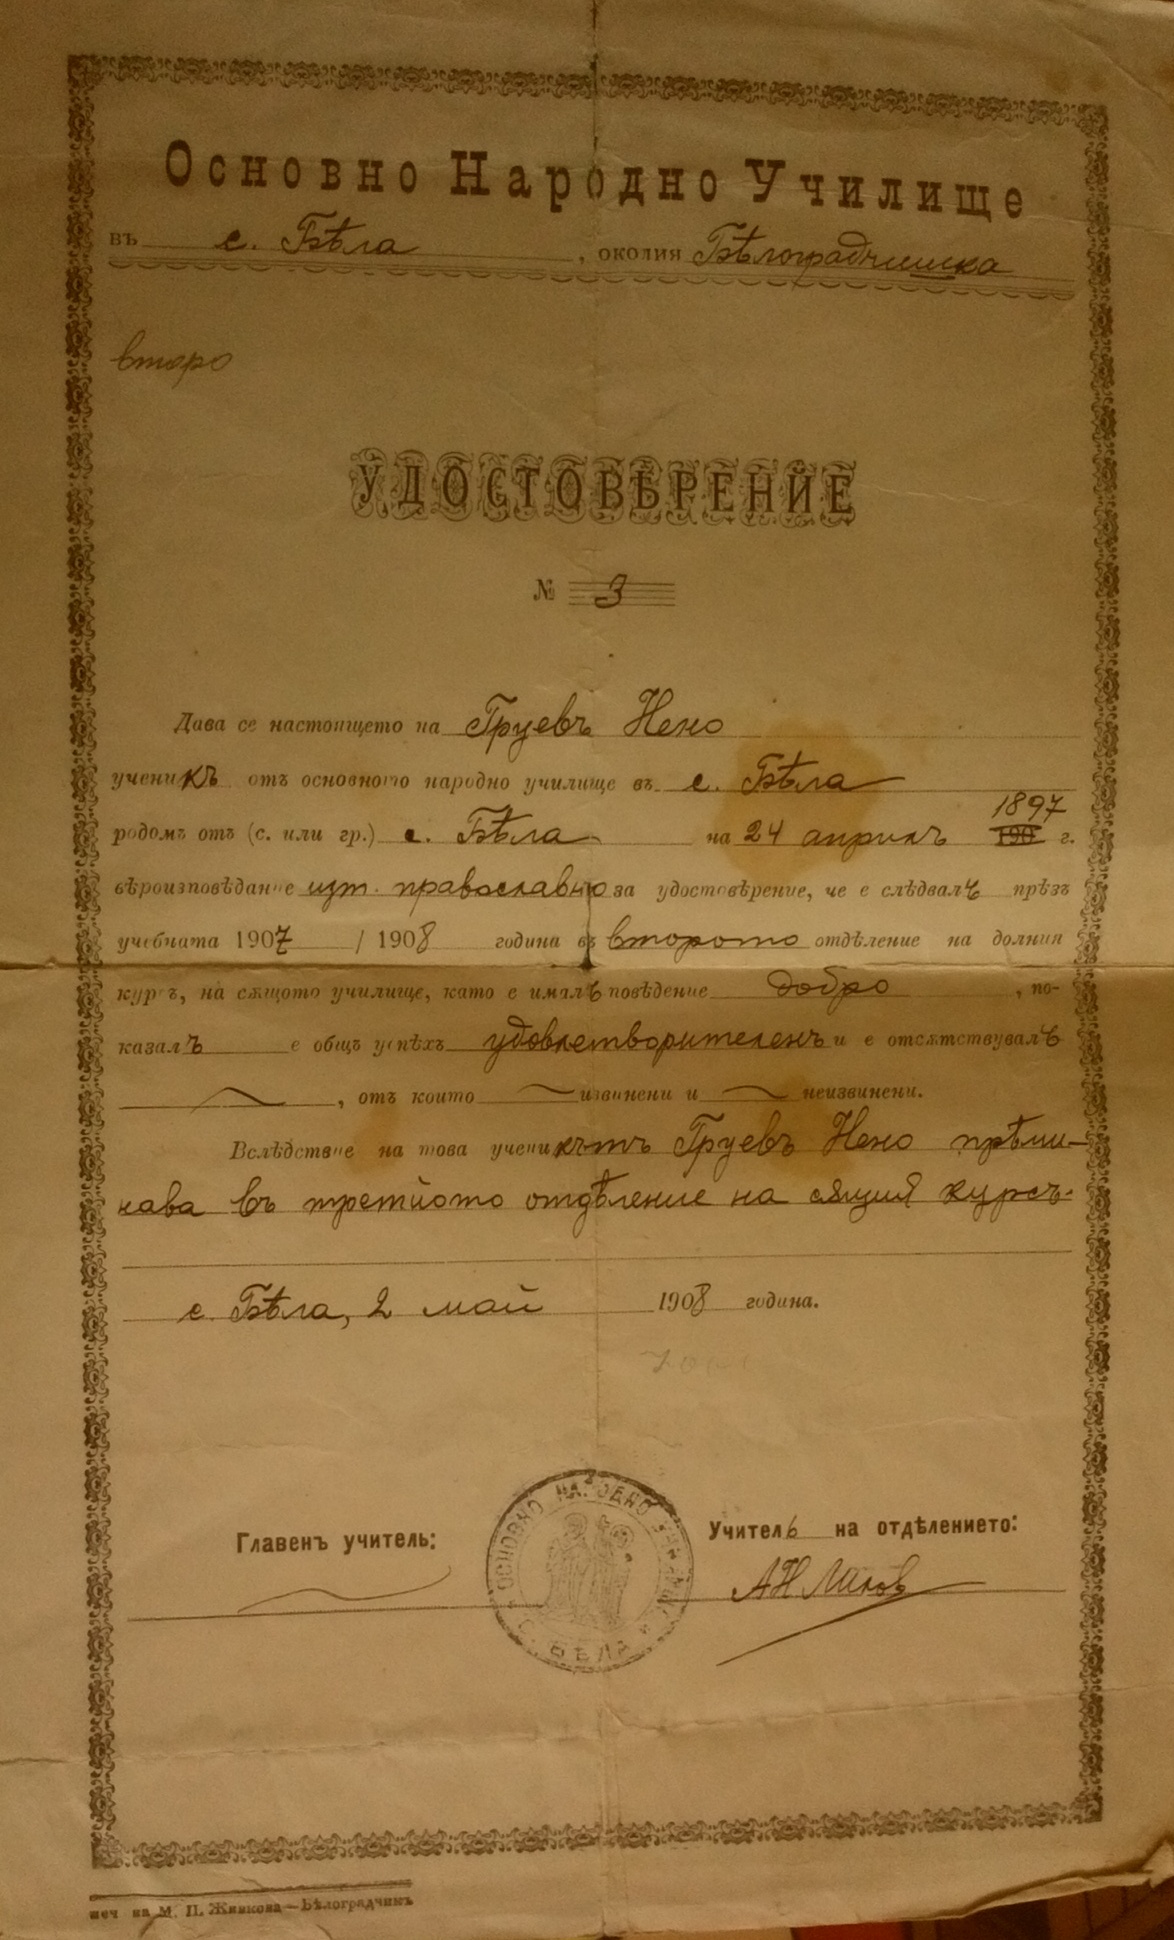 Основно Народно Училище
въ с. Бѣла, околия Бѣлоградчишка
второ
УДОСТОВѢРЕНИЕ
№ 3
Дава се настоящето на Груевъ Нено
ученикъ отъ основното народно училище въ с. Бѣла
1897
родомъ отъ (с. или гр.) с. Бѣла на 24 априлъ 190 г.
вѣроизповѣдание изт. православно за удостовѣрение, че е слѣдвалъ прѣзъ
учебната 1907 / 1908 година въ второто отдѣление на долния
курсъ, на сѫщото училище, като е ималъ поведение добро, по-
казалъ е общъ успѣхъ удовлетворителенъ и е отсѫтствувалъ
, отъ които извинени и неизвинени.
Вслѣдствие на това ученикътъ Груевъ Нено прѣми-
нава въ третйото отдѣление на сѫщия курсъ.
с. Бѣла, 2 май 1908 година.
Главенъ учитель:
ОСНОВНО НАРОДНО УЧИЛИЩЕ
С. БѢЛА
Учитель на отдѣлението:
печ. на М. П. Живкова — Бѣлоградчикъ